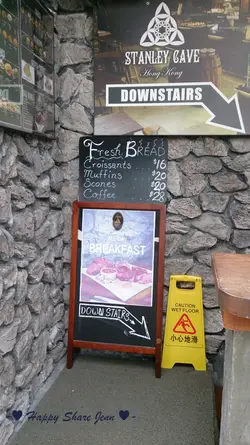 STANLEY CAVE
Hong Kong
DOWNSTAIRS
Fresh BREAD
Croissants $16
Muffins $20
Scones $20
Coffee $28
BREAKFAST
DOWNSTAIRS
CAUTION
WET FLOOR
小心地滑
♥ Happy Share Jenn ♥